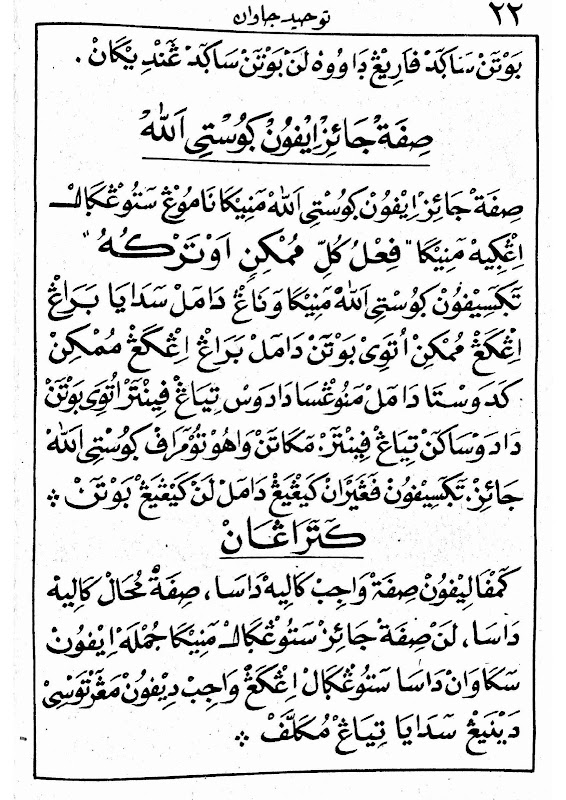 توحيد جاوان ٢٢
بَوْتَنْ سَاكَدْ فَارِيڠْ دَاوُوهْ لَنْ بَوْتَنْ سَاكَدْ ڠَنْدِيكَانْ.
صِفَةْ جَائِزْ اِيْفُوْنْ ݢُوْسْتِي اَللّٰهْ
صِفَةْ جَائِزْ اِيْفُوْنْ ݢُوْسْتِي اَللّٰهْ مَنِيْكَا نَامُوْڠْ سَتُوْڠْݢَالْ
اِڠْݢِيْه مَنِيْكَا "فِعْلُ كُلِّ مُمْكِنٍ اَوْتَرْكُهُ"
تَݢْسِيْفُوْنْ ݢُوْسْتِي اَللّٰهْ مَنِيْكَا وَنَاڠْ دَامَلْ سَدَايَا بَرَاڠْ
اِڠْكَڠْ مُمْكِنْ اُتَوِيْ بَوْتَنْ دَامَلْ بَرَاڠْ اِڠْكَڠْ مُمْكِنْ
كَدَوْسْتَا دَامَلْ مَنُوْڠْسَا دَادَوْسْ تِيَاڠْ فِيْنْتَرْ اُتَوِيْ بَوْتَنْ
دَادَوْسَاكَنْ تِيَاڠْ فِيْنْتَرْ. مَكَاتَنْ وَاهُوْ تُوْمْرَافْ ݢُوْسْتِي اَللّٰهْ
جَائِزْ. تَݢْسِيْفُوْنْ فَڠَيْرَانْ كَيْڠِيڠْ دَامَلْ لَنْ كَيْڠِيڠْ بَوْتَنْ ؞
كَتَرَاڠَانْ
كَمْفَالِيْفُوْنْ صِفَةْ وَاجِبْ كَالِيْه دَاسَا، صِفَةْ مُحَالْ كَالِيْه
دَاسَا، لَنْ صِفَةْ جَائِزْ سَتُوْڠْݢَالْ مَنِيْكَا جُمْلَهْ اِيْفُوْنْ
سَكَاوَانْ دَاسَا سَتُوْڠْݢَالْ اِڠْكَڠْ وَاجِبْ دِيْفُوْنْ مَڠَرْتَوْسِيْ
دَيْنِيڠْ سَدَايَا تِيَاڠْ مُكَلَّفْ ؞